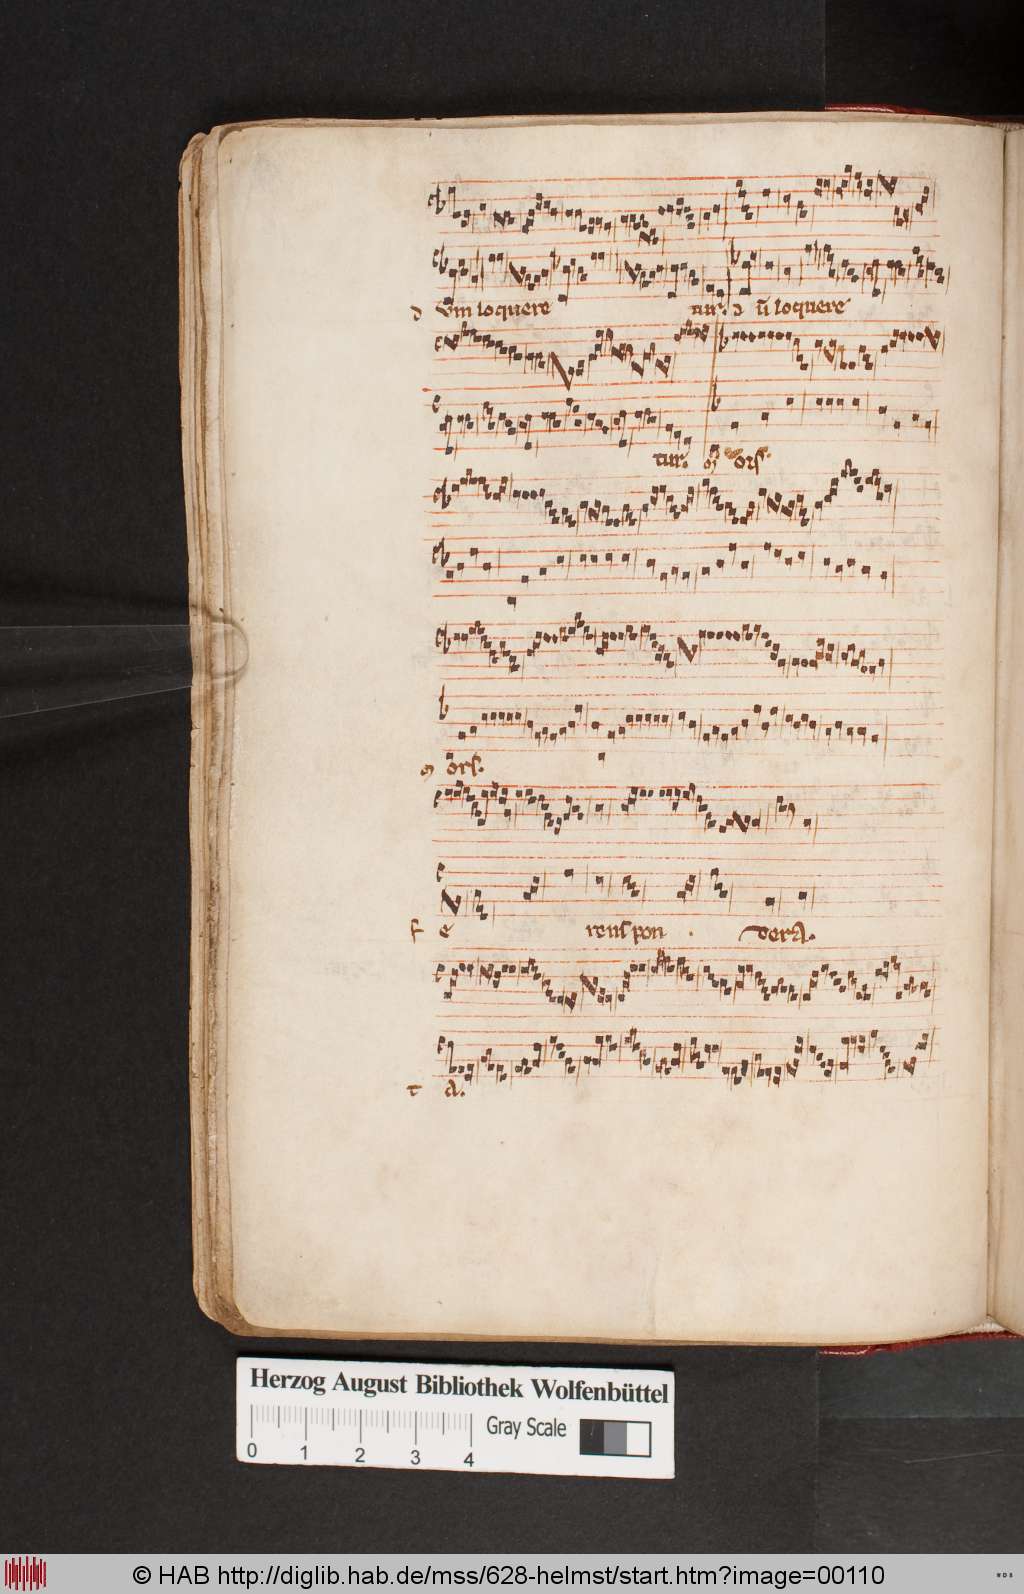 d vm loquere tur. d ū loquere
tur. m ors.
m ors.
f e renspon dera.
t a.
Herzog August Bibliothek Wolfenbüttel
Gray Scale
0 1 2 3 4
© HAB http://diglib.hab.de/mss/628-helmst/start.htm?image=00110